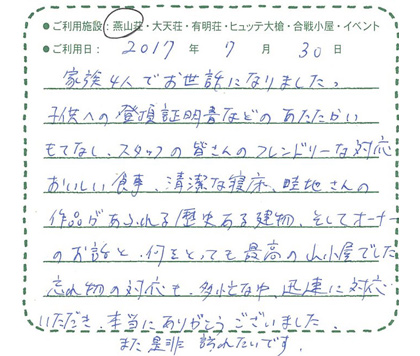 ●ご利用施設:燕山荘・大天荘・有明荘・ヒュッテ大槍・合戦小屋・イベント
●ご利用日: 2017 年 7 月 30 日
家族4人でお世話になりました。
子供への登頂証明書などのあたたかい
もてなし、スタッフの皆さんのフレンドリーな対応
おいしい食事、清潔な寝床、畦地さんの
作品があふれる歴史ある建物、そしてオーナー
のお話と、何をとっても最高の山小屋でした
忘れ物の対応も、多忙な中、迅速に対応
いただき、本当にありがとうございました。
また是非訪れたいです。